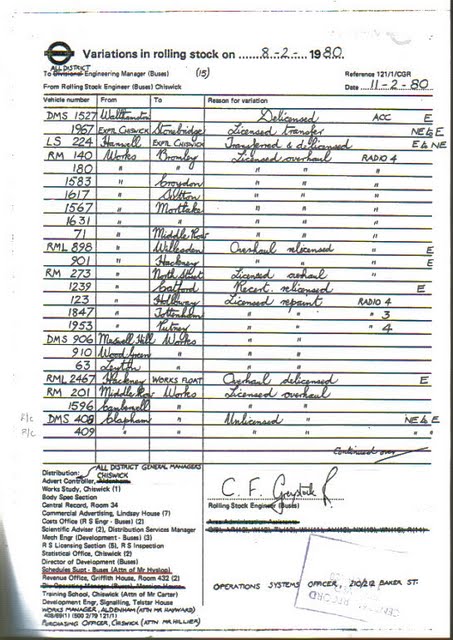 Variations in rolling stock on 8-2- 1980
ALL DISTRICT
To Divisional Engineering Manager (Buses) (15) Reference 121/1/CGR
From Rolling Stock Engineer (Buses) Chiswick Date 11-2-80
Vehicle number From To Reason for variation
DMS 1527 Walthamstow Delicensed ACC E
1967 EXPL CHISWICK Stonebridge Licensed transfer NE & E
LS 224 Hanwell EXPL CHISWICK Transferred & delicensed E & NE
RM 140 Works Bromley Licensed overhaul RADIO 4
180 " " " " "
1583 " Croydon " " "
1617 " Sutton " " "
1567 " Mortlake " " "
1631 " " " " "
71 " Middle Row " " "
RML 898 " Willesden Overhaul relicensed " E
901 " Hackney " " " E
RM 273 " North Street Licensed overhaul "
1239 " Catford Recert. relicensed E
123 " Holloway Licensed repaint RADIO 4
1847 " Tottenham " " " 3
1953 " Putney " " " 4
DMS 906 Muswell Hill Works " "
910 Wood Green " " "
63 Leyton " " "
RML 2467 Hackney WORKS FLOAT Overhaul delicensed E
RM 201 Middle Row Works Licensed overhaul
1596 Camberwell " " "
P/C DMS 408 Clapham " Unlicensed " NE & E
P/C 409 " " " " " "
Continued over
Distribution: ALL DISTRICT GENERAL MANAGERS
Advert Controller, Aldenham CHISWICK
Works Study, Chiswick (1)
Body Spec Section
Central Record, Room 34
Commercial Advertising, Lindsay House (7)
Costs Office (R S Engr - Buses) (2)
Scientific Adviser (2), Distribution Services Manager
Mech Engr (Development) (3)
R S Licensing Section (5), R S Inspection
Statistical Office, Chiswick (2)
Director of Development (Buses)
Schedules Supt - Buses (Attn of Mr Hyslop)
Revenue Office, Griffith House, Room 432 (2)
Training School, Chiswick (Attn of Mr Carter)
Development Engr, Signalling, Telstar House
WORKS MANAGER, ALDENHAM (ATTN MR HAYWARD)
PURCHASING OFFICER, CHISWICK (ATTN MR HILLIER)
C. F.
Rolling Stock Engineer (Buses)
Area Administration Assistants
OPERATIONS SYSTEMS OFFICER, 210/212 BAKER ST.